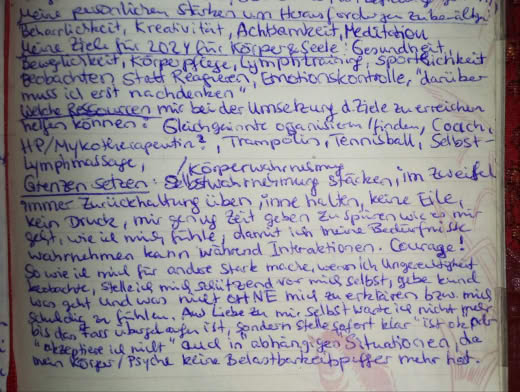 Meine persönlichen Stärken um Herausforderungen zu bewältigen
Beharrlichkeit, Kreativität, Achtsamkeit, Meditation
Meine Ziele für 2024 für Körper & Seele: Gesundheit,
Beweglichkeit, Körperpflege, Lymphtraining, Sportlichkeit
Beobachten statt Reagieren, Emotionskontrolle, "darüber
muss ich erst nachdenken"
Welche Ressourcen mir bei der Umsetzung d. Ziele zu erreichen
helfen können: Gleichgesinnte organisieren/finden, Coach,
HP/Mykotherapeutin?, Trampolin, Tennisball, Selbst-
Lymphmassage,
/Körperwahrnehmung
Grenzen setzen: Selbstwahrnehmung stärken, im Zweifel
immer Zurückhaltung üben, inne halten, keine Eile,
kein Druck, mir genug Zeit geben zu spüren wie es mir
geht, wie ich mich fühle, damit ich meine Bedürfnisse
wahrnehmen kann während Interaktionen. Courage!
So wie ich mich für andere stark mache, wenn ich Ungerechtigkeit
beobachte, stelle ich mich schützend vor mich selbst, gebe kund
was geht und was nicht OHNE mich zu erklären bzw. mich
schuldig zu fühlen. Aus Liebe zu mir selbst warte ich nicht mehr
bis das Fass übergelaufen ist, sondern stelle sofort klar "ist ok" oder
"akzeptiere ich nicht" auch in abhängigen Situationen, da
mein Körper/Psyche keine Belastbarkeitspuffer mehr hat.